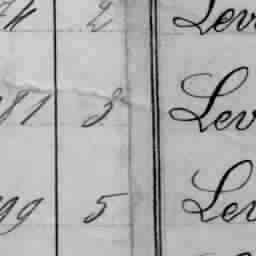 74 2 Lev
81 3 Lev
99 5 Lev